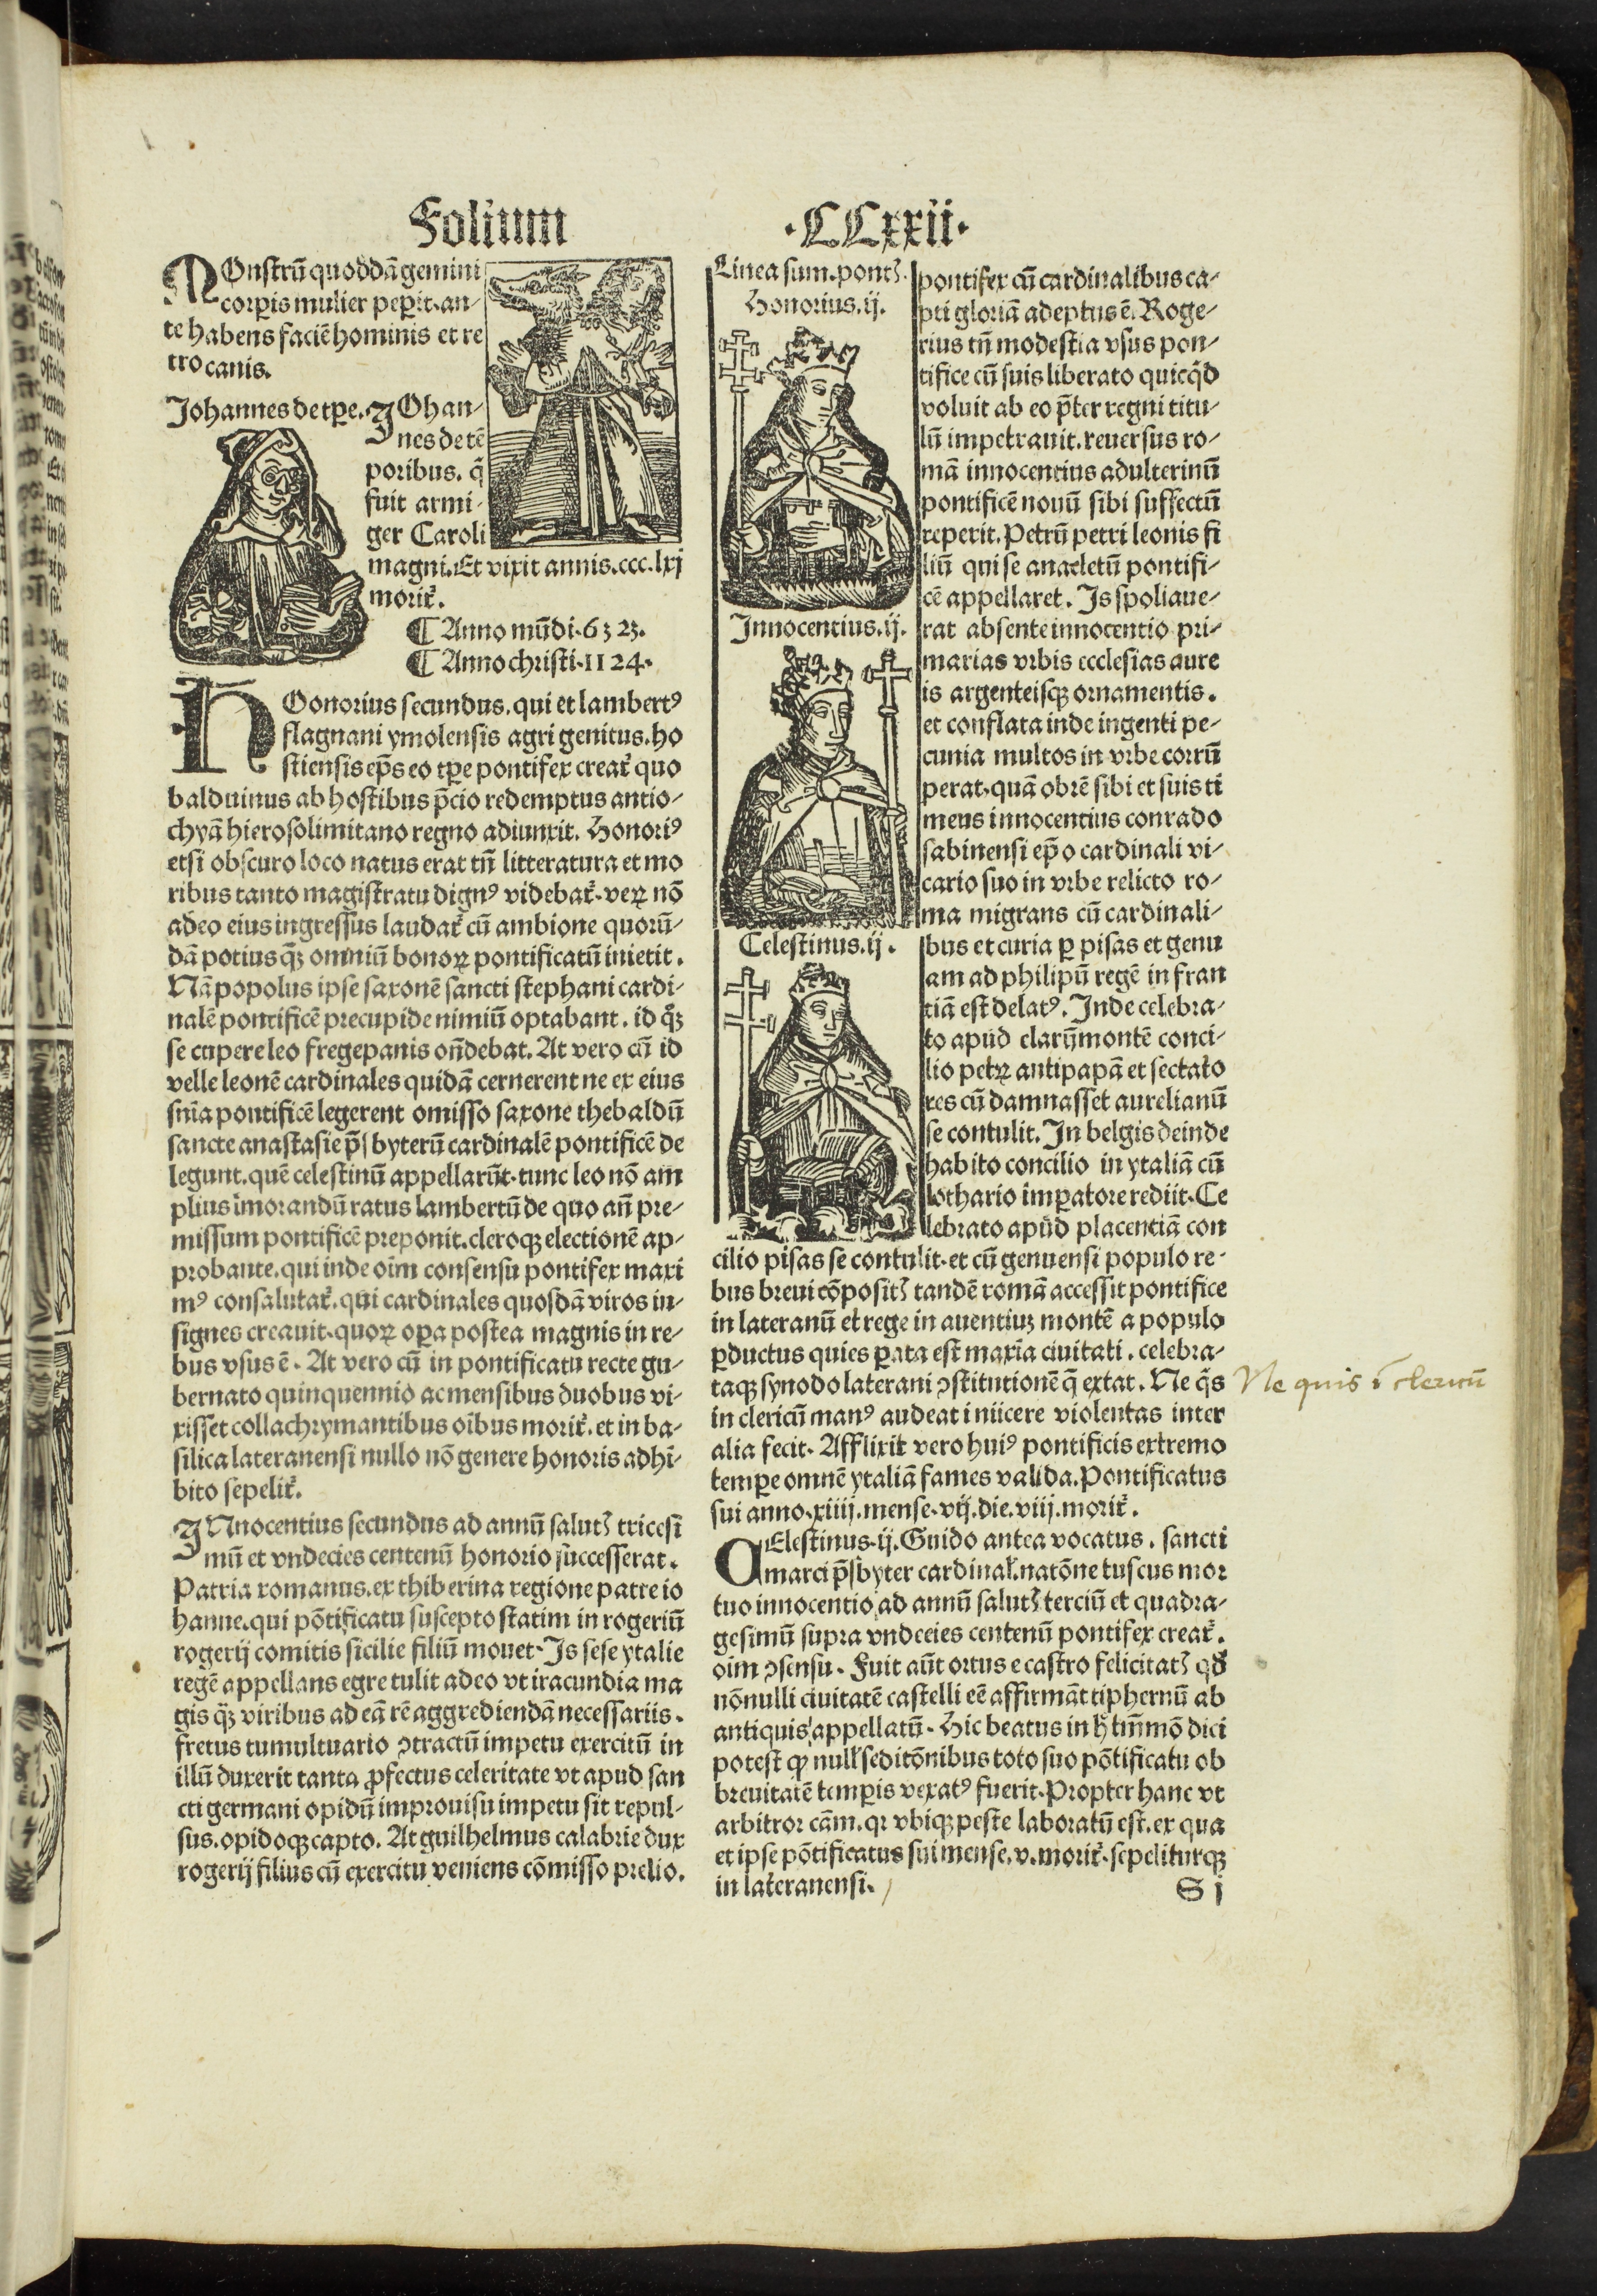 Folium
·CCxxii·
MOnstrũ quoddã gemini
corꝑis mulier peꝑit. an-
te habens faciẽ hominis et re
tro canis.
Johannes de tꝑe.
JOhan-
nes de tẽ
poribus. q̃
fuit armi-
ger Caroli
magni. Et vixit annis. ccc. lxj
morit᷑.
¶ Anno mũdi. 6323.
¶ Anno christi. 1124.
HOonorius secundus. qui et lambertꝰ
flagnani ymolensis agri genitus. ho
stiensis ep̃s eo tꝑe pontifex creat᷑ quo
balduinus ab hostibus p̃cio redemptus antio-
chyã hierosolimitano regno adiunxit. Honoriꝰ
etsi obscuro loco natus erat tñ litteratura et mo
ribus tanto magistratu dignꝰ videbat᷑. veꝝ nõ
adeo eius ingressus laudat᷑ cũ ambione quorũ-
dã potius q̃ꝫ omniũ bonoꝝ pontificatũ inietit.
Nã popolus ipse saxonẽ sancti stephani cardi-
nalẽ pontificẽ precupide nimiũ optabant. id q̃ꝫ
se cupere leo fregepanis oñdebat. At vero cũ id
velle leonẽ cardinales quidã cernerent ne ex eius
sñia pontificẽ legerent omisso saxone thebaldũ
sancte anastasie p̃sbyterũ cardinalẽ pontificẽ de
legunt. quẽ celestinũ appellarũt. tunc leo nõ am
plius imorandũ ratus lambertũ de quo añ pre-
missum pontificẽ preponit. cleroqꝫ electionẽ ap-
probante. qui inde oim consensu pontifex maxi
mꝰ consalutat᷑. qui cardinales quosdã viros in-
signes creauit. quoꝝ oꝑa postea magnis in re-
bus vsus ẽ. At vero cũ in pontificatu recte gu-
bernato quinquennio ac mensibus duobus vi-
xisset collachrymantibus oĩbus morit᷑. et in ba-
silica lateranensi nullo nõ genere honoris adhi-
bito sepelit᷑.
JNnocentius secundus ad annũ salutꝭ tricesi
mũ et vndecies centenũ honorio successerat.
Patria romanus. ex thiberina regione patre io
hanne. qui põtificatu suscepto statim in rogeriũ
rogerij comitis sicilie filiũ mouet. Is sese ytalie
regẽ appellans egre tulit adeo vt iracundia ma
gis q̃ꝫ viribus ad eã rẽ aggrediendã necessariis.
fretus tumultuario ꝯtractũ impetu exercitũ in
illũ duxerit tanta ꝓfectus celeritate vt apud san
cti germani opidũ improuisu impetu sit repul-
sus. opidoqꝫ capto. At guilhelmus calabrie dux
rogerij filius cũ exercitu veniens cõmisso prelio.
Linea sum. pontꝭ.
Honorius. ij.
Innocentius. ij.
Celestinus. ij.
pontifex cũ cardinalibus ca-
pti gloriã adeptus ẽ. Roge-
rius tñ modestia vsus pon-
tifice cũ suis liberato quicq̃d
voluit ab eo p̃ter regni titu-
lũ impetrauit. reuersus ro-
mã innocentius adulterinũ
pontificẽ nouũ sibi suffectũ
reperit. Petrũ petri leonis fi
liũ qui se anacletũ pontifi-
cẽ appellaret. Is spoliaue-
rat absente innocentio pri-
marias vrbis ecclesias aure
is argenteisqꝫ ornamentis.
et conflata inde ingenti pe-
cunia multos in vrbe corrũ
perat. quã obrẽ sibi et suis ti
mens innocentius conrado
sabinensi ep̃o cardinali vi-
cario suo in vrbe relicto ro-
ma migrans cũ cardinali-
bus et curia ꝑ pisas et genu
am ad philipũ regẽ in fran
tiã est delatꝰ. Inde celebra-
to apud clarũmontẽ conci-
lio petꝝ antipapã et sectato
res cũ damnasset aurelianũ
se contulit. In belgis deinde
habito concilio in ytaliã cũ
lothario imꝑatore rediit. Ce
lebrato apud placentiã con
cilio pisas se contulit. et cũ genuensi populo re-
bus breui cõpositꝭ tandẽ romã accessit pontifice
in lateranũ et rege in auentiuꝫ montẽ a populo
ꝑductus quies ꝑata est maxĩa ciuitati. celebra-
taqꝫ synodo laterani ꝯstitutionẽ q̃ extat. Ne q̃s
in clericũ manꝰ audeat iniicere violentas inter
alia fecit. Afflixit vero huiꝰ pontificis extremo
temꝑe omnẽ ytaliã fames valida. Pontificatus
sui anno. xiiij. mense. vij. die. viij. morit᷑.
CElestinus. ij. Guido antea vocatus. sancti
marci p̃sbyter cardinal᷑. natõne tuscus mor
tuo innocentio ad annũ salutꝭ terciũ et quadra-
gesimũ supra vndecies centenũ pontifex creat᷑.
oim ꝯsensu. Fuit aũt ortus e castro felicitatꝭ qđ
nõnulli ciuitatẽ castelli eẽ affirmãt tiphernũ ab
antiquis appellatũ. Hic beatus in h̃ tm̃mõ dici
potest ꝙ null᷑ seditõnibus toto suo põtificatu ob
breuitatẽ temꝑis vexatꝰ fuerit. Propter hanc vt
arbitror cãm. qr vbiqꝫ peste laboratũ est. ex qua
et ipse põtificatus sui mense. v. morit᷑. sepeliturqꝫ
in lateranensi.
S j
Ne quis ĩ clericũ